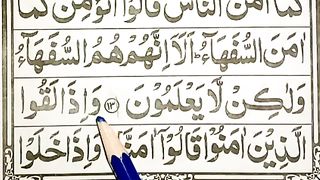 كَمَآ اٰمَنَ النَّاسُ قَالُوْٓا اَنُؤْمِنُ كَمَآ
اٰمَنَ السُّفَهَآءُ ؕ اَلَاۤ اِنَّهُمْ هُمُ السُّفَهَآءُ
وَلٰكِنْ لَّا يَعْلَمُوْنَ ﴿۱۳﴾ وَاِذَا لَقُوا
الَّذِيْنَ اٰمَنُوْا قَالُوْٓا اٰمَنَّا ۖۚ وَاِذَا خَلَوْا